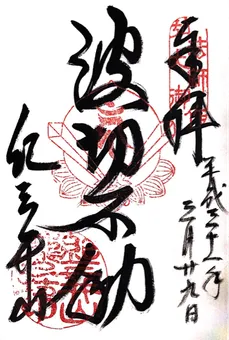 奉拝
平成三十一年
三月廿九日
波切不動
紀三井山